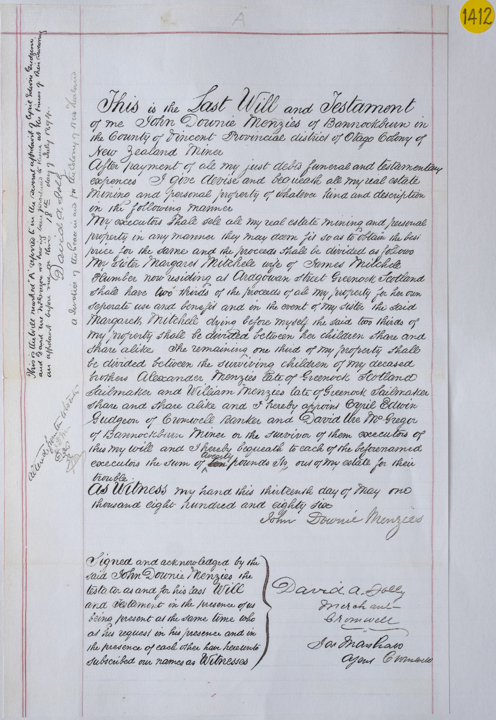 1412
A
This is the Last Will and Testament
of me John Downie Menzies of Bannockburn in
the County of Vincent Provincial district of Otago Colony of
New Zealand Miner
After payment of all my just debts funeral and testamentary
expences I give devise and bequeath all my real estate
mining and personal property of whatever kind and description
in the following manner
My executors shall sell all my real estate mining and personal
property in any manner they may deem fit so as to obtain the best
price for the same and the proceeds shall be divided as follows
My Sister Margaret Mitchell wife of James Mitchell
Plumber now residing at Ardgowan Street Greenock Scotland
shall have two thirds of the proceeds of all my property for her own
seperate use and benefit and in the event of my Sister the said
Margaret Mitchell dying before myself the said two thirds of
my property shall be divided between her children share and
share alike The remaining one third of my property shall
be divided between the surviving children of my deceased
brothers Alexander Menzies late of Greenock Scotland
Sailmaker and William Menzies late of Greenock Sailmaker
share and share alike and I hereby appoint Cyril Edwin
Gudgeon of Cromwell Banker and David McGregor
of Bannockburn Miner or the survivor of them executors of
this my will and I hereby bequeath to each of the beforenamed
twenty
executors the sum of ten pounds stg out of my estate for their
trouble
As Witness my hand this thirteenth day of May one
thousand eight hundred and eighty six
John Downie Menzies
Signed and acknowledged by the
said John Downie Menzies the
testator as and for his last Will
and Testament in the presence of us
being present at the same time who
at his request in his presence and in
the presence of each other have hereunto
subscribed our names as Witnesses
David A. Jolly
Merchant
Cromwell
Jas Marshall
Agent Cromwell
This is the Will marked "A" referred to in the annexed affidavit of Cyril Edwin Gudgeon
and David McGregor at the time of their swearing
an affidavit before me this 18th day of July 1894
David A Jolly
a Solicitor of the Supreme Court of New Zealand